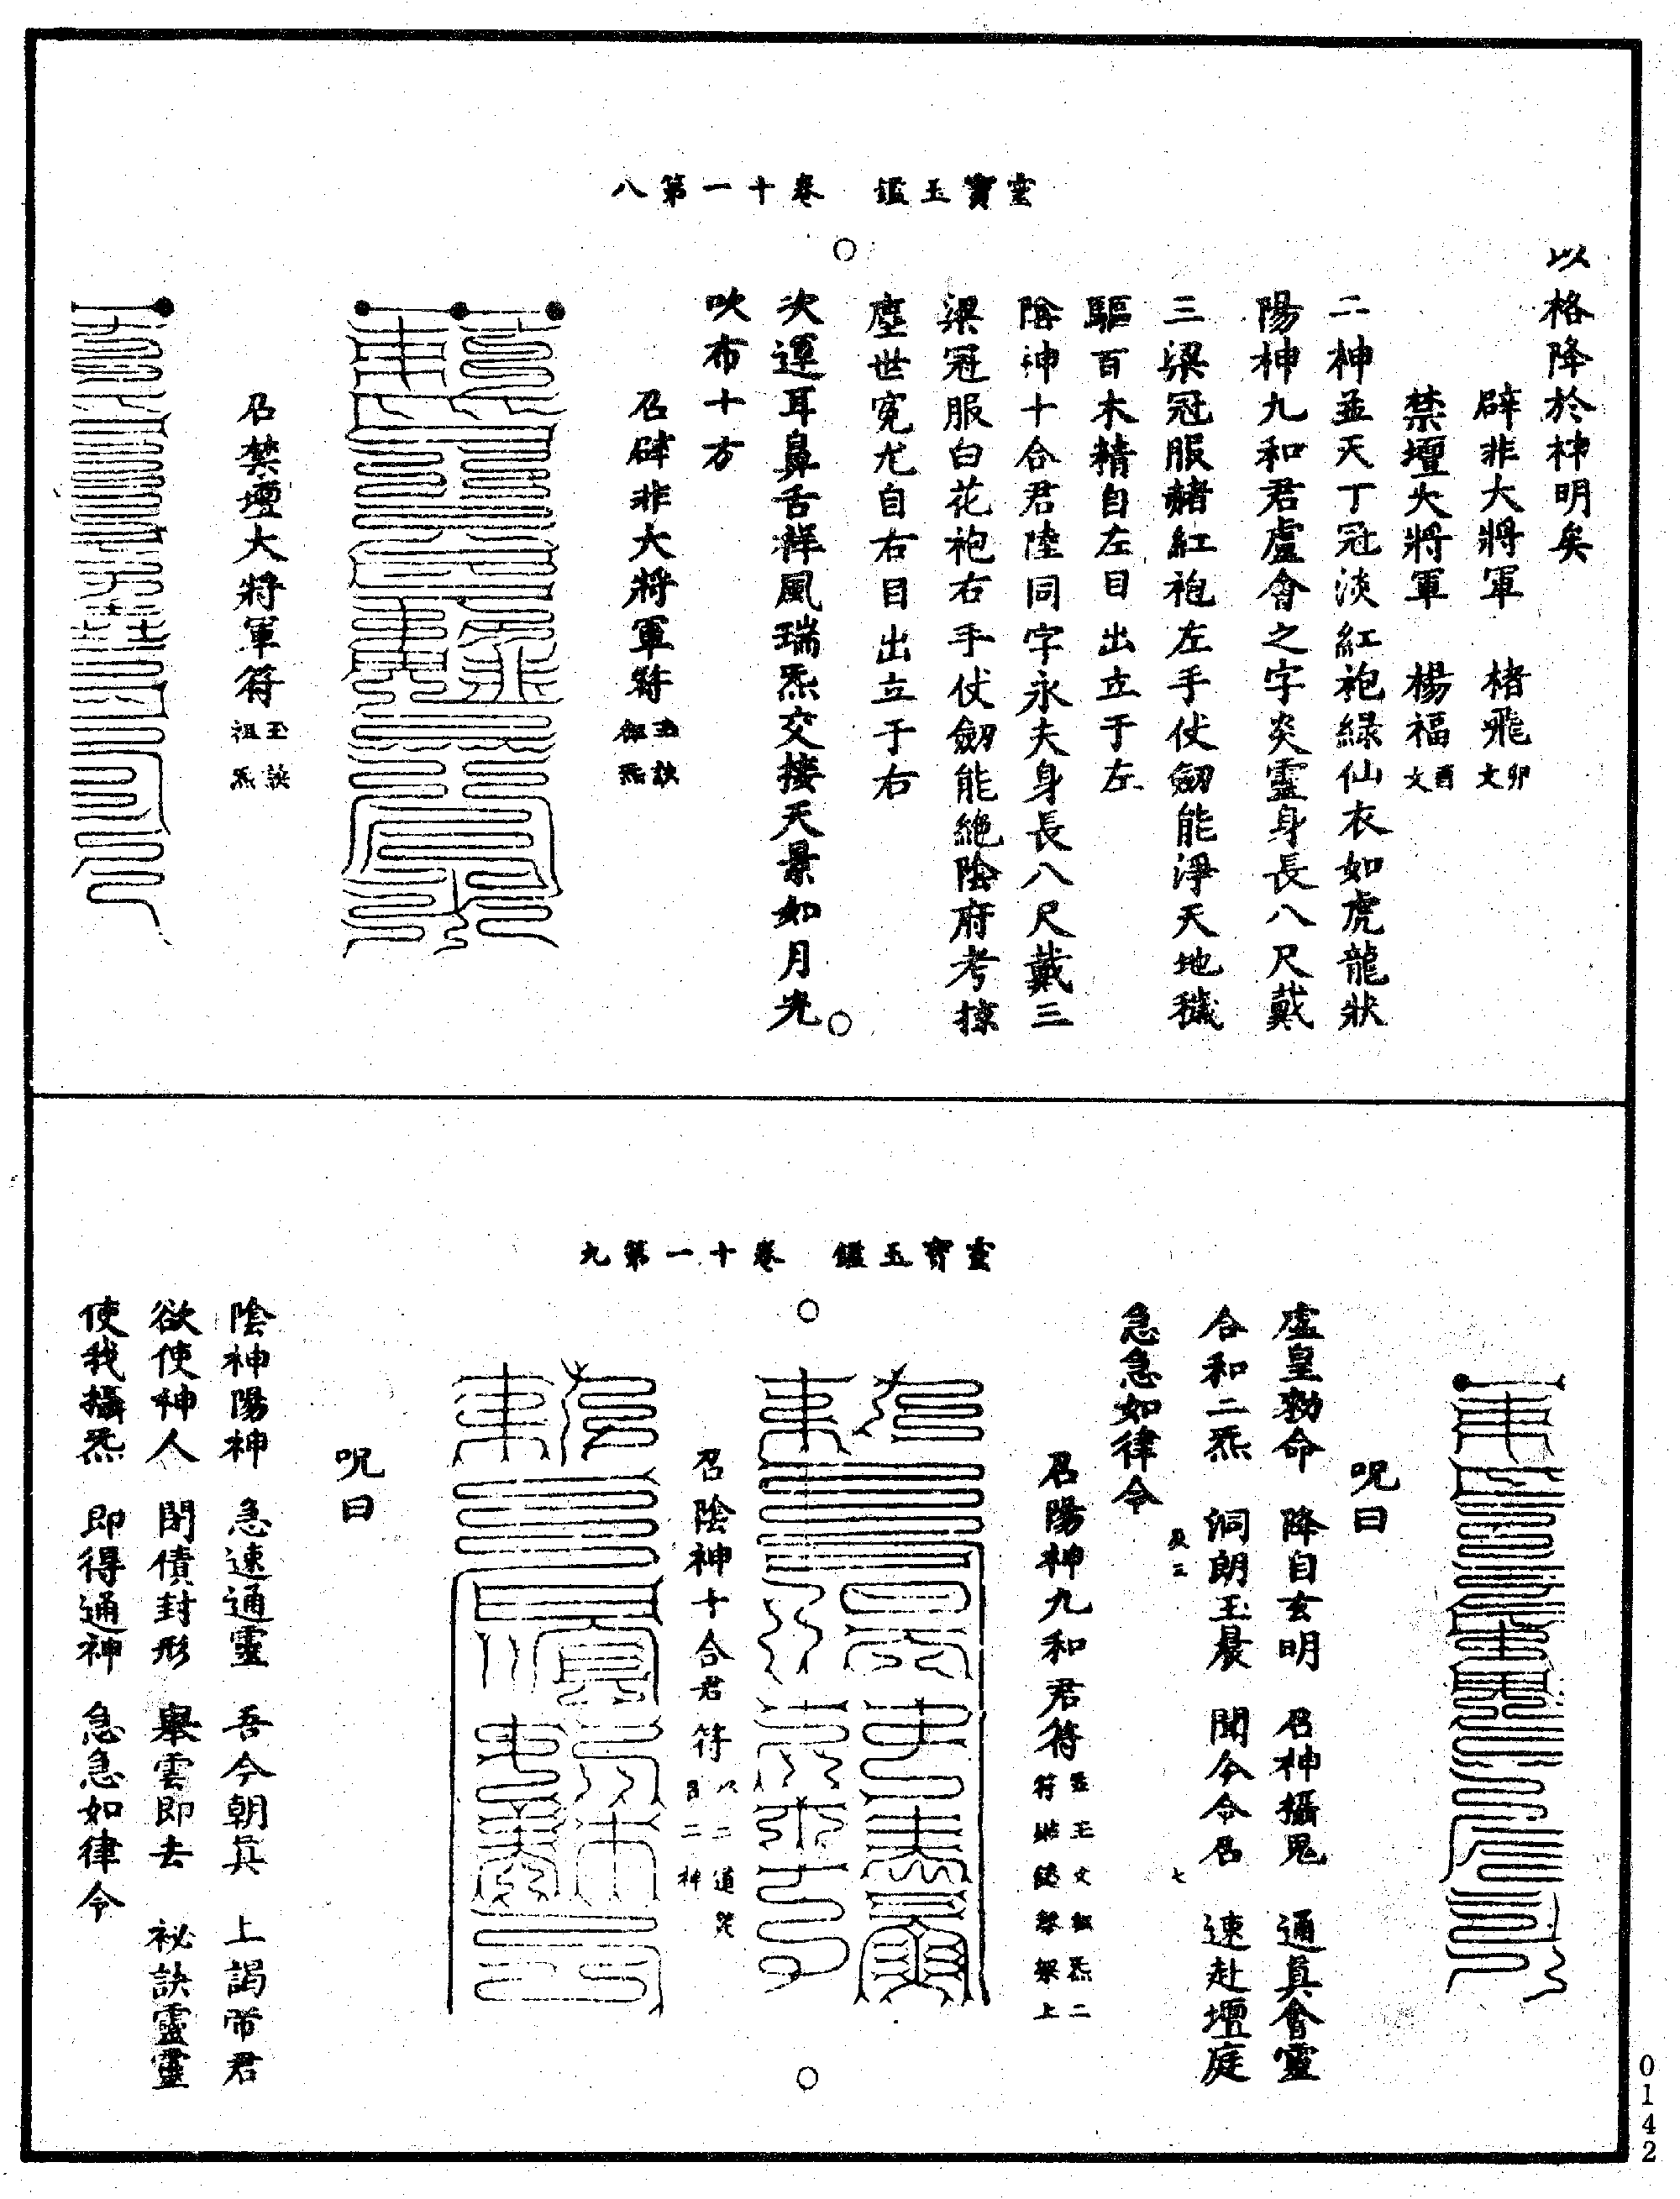 靈寶玉鑑 卷十一第八
以格降於神明矣
辟非大將軍 楮飛卯文
禁壇大將軍 楊福酉文
二神並天丁冠淡紅袍綠仙衣如虎龍狀
陽神九和君盧會之字炎靈身長八尺戴
三梁冠服赭紅袍左手仗劒能淨天地穢
驅百木精自左目出立于左
陰神十合君陸同字永夫身長八尺戴三
梁冠服白花袍右手仗劒能絕陰府考掠
塵世寃尤自右目出立于右
次運耳鼻舌祥風瑞炁交接天景如月光
吹布十方
召辟非大將軍符玉訣祖炁
召禁壇大將軍符玉訣祖炁
靈寶玉鑑 卷十一第九
呪曰
虛皇勑命 降自玄明 召神攝鬼 通眞會靈
合和二炁 洞朗玉晨 聞今令召 速赴壇庭
急急如律令
召陽神九和君符
召陰神十合君符以二道符召二神
呪曰
陰神陽神 急速通靈 吾今朝眞 上謁帝君
欲使神人 閉債封形 舉雲即去 祕訣靈靈
使我攝炁 即得通神 急急如律令
0142